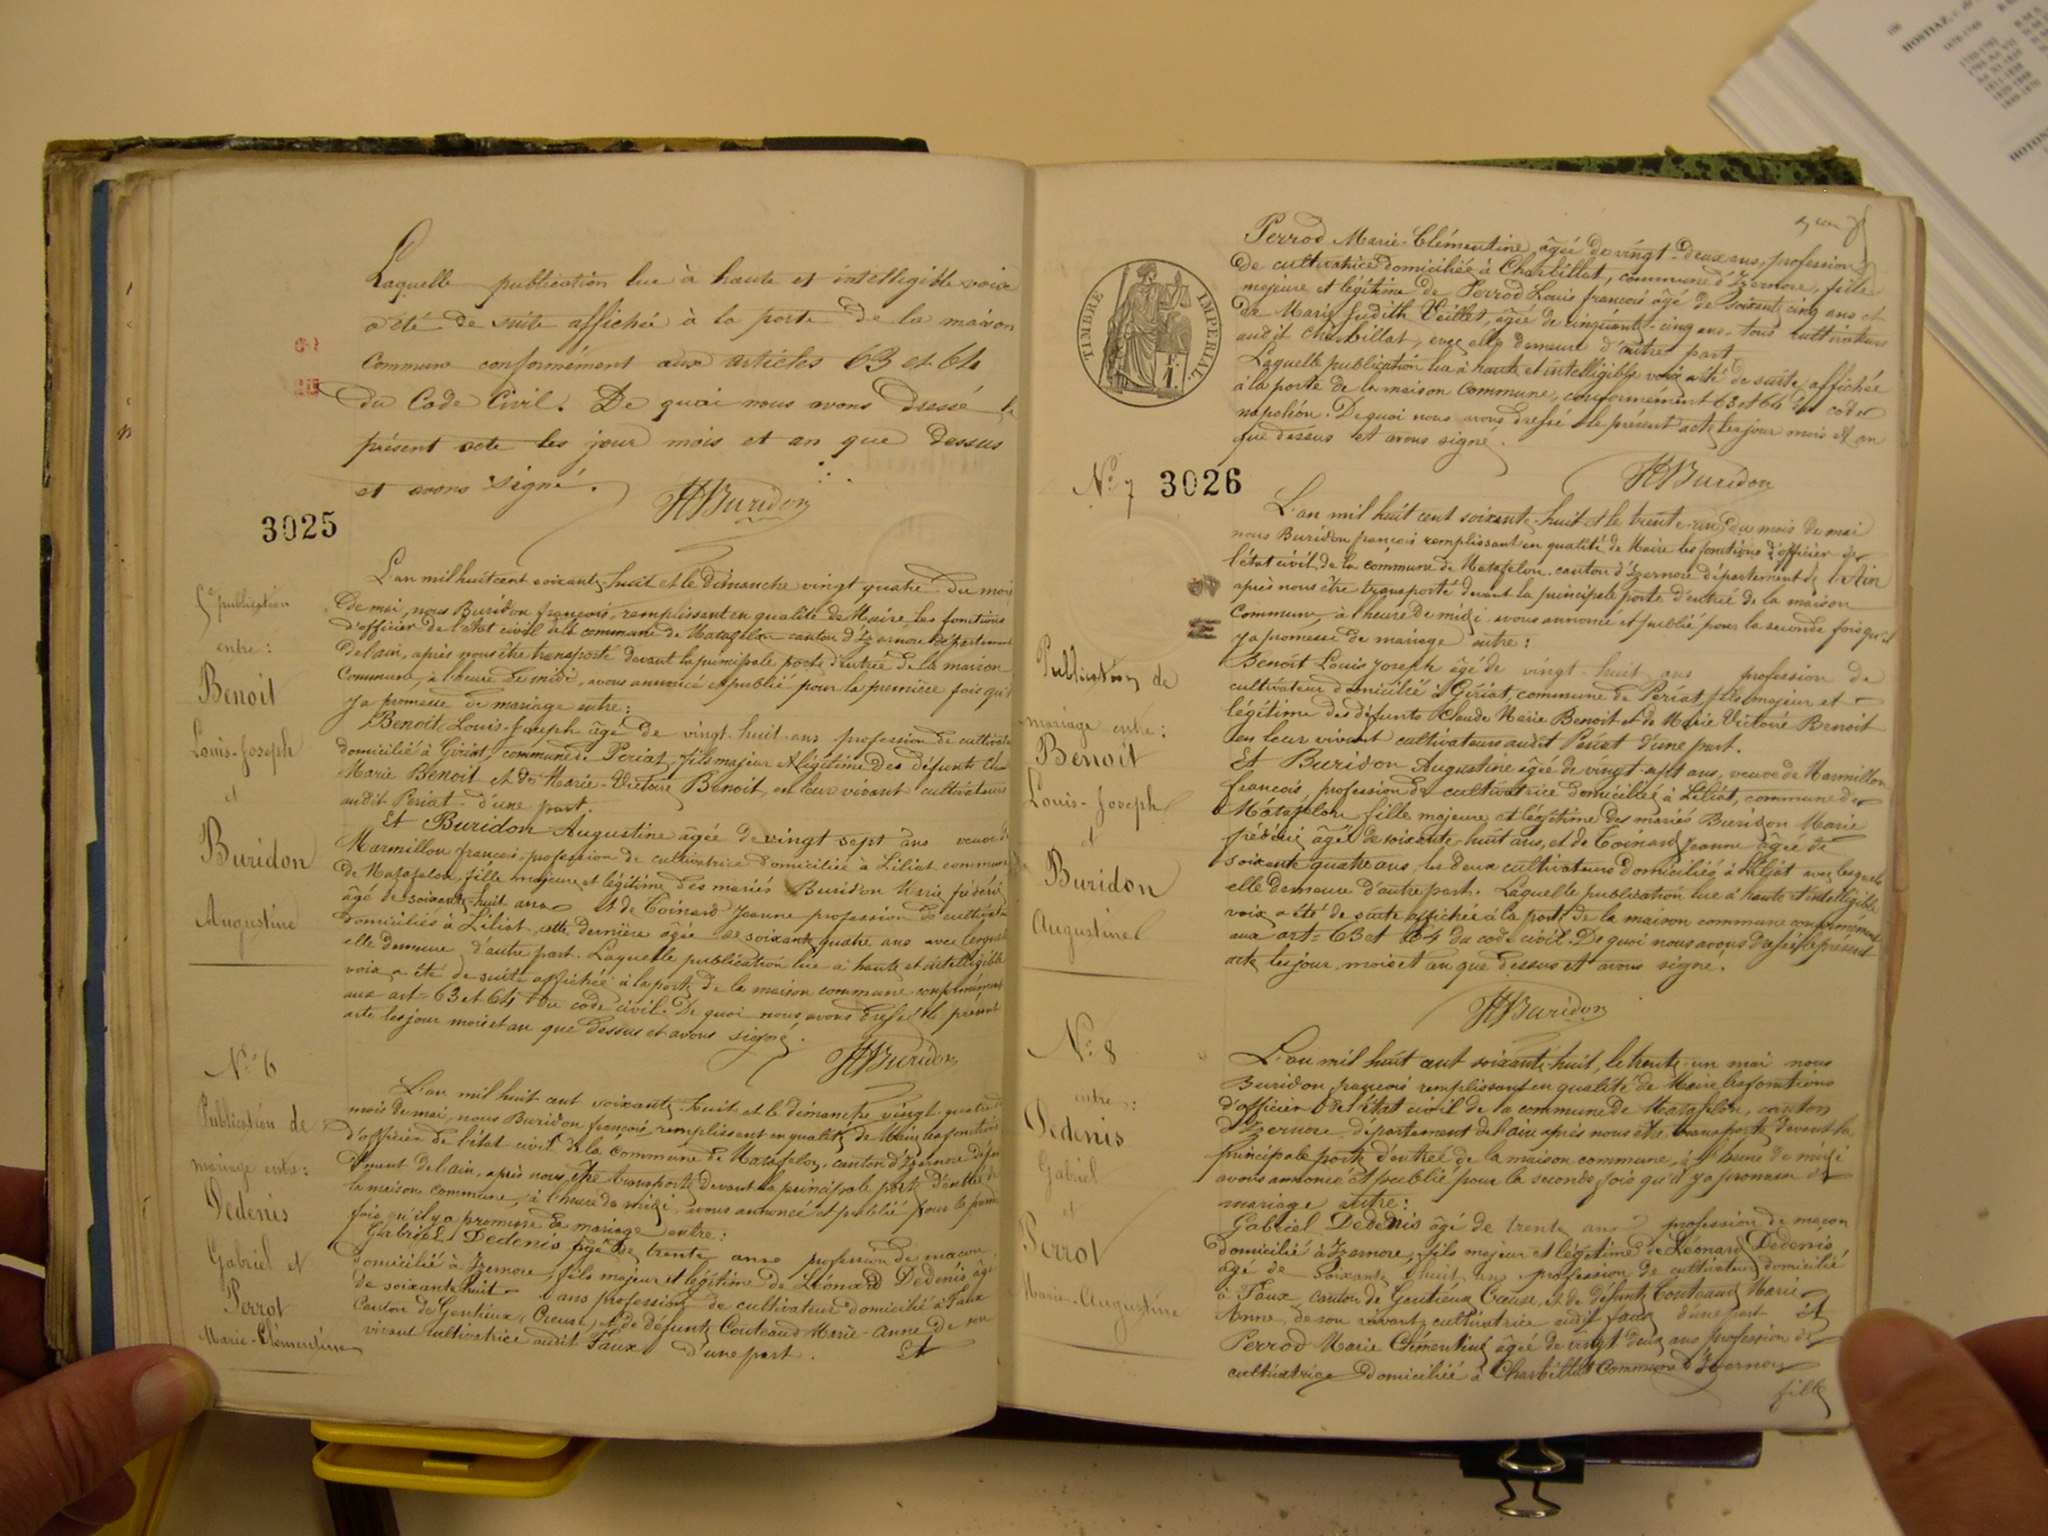 Laquelle publication lue à haute et intelligible voix
a été de suite affichée à la porte de la maison
commune conformément aux articles 63 et 64
du Code Civil. De quoi nous avons dressé le
présent acte les jour mois et an que dessus
et avons signé.
Buridon
3025
publication
entre:
Benoit
Louis-Joseph
et
Buridon
Augustine
L'an mil huit cent soixante huit et le dimanche vingt quatre du mois
de mai, nous Buridon françois, remplissant en qualité de Maire les fonctions
d'officier de l'état civil de la commune de Matafelon canton d'Izernore département
de l'ain, après nous être transporté devant la principale porte d'entrée de la maison
Commune, à l'heure de midi, avons annoncé et publié pour la première fois qu'il
y a promesse de mariage entre:
Benoit Louis-Joseph âgé de vingt-huit ans profession de cultivateur
domicilié à Giriat, commune de Périat, fils majeur et légitime des défunts
Marie Benoit et de Marie-Victoire Benoit, en leur vivant cultivateurs
audit Périat d'une part.
Et Buridon Augustine âgée de vingt sept ans veuve de
Marmillon françois, profession de cultivatrice domiciliée à Liliat commune
de Matafelon, fille majeure et légitime des mariés Buridon Marie frédéric
âgé de soixante-huit ans et de Coinard Jeanne profession de cultivateurs
domiciliés à Liliat, cette dernière agée de soixante quatre ans avec lesquels
elle demeure, d'autre part. Laquelle publication lue à haute et intelligible
voix a été de suite affichée à la porte de la maison commune conformément
aux art= 63 et 64 du code civil. De quoi nous avons dressé le présent
acte les jour mois et an que dessus et avons signé.
Buridon
N° 6
Publication de
mariage entre:
Dedenis
Gabriel et
Perrot
Marie-Clémentine
L'an mil huit cent soixante huit et le dimanche vingt quatre du
mois de mai, nous Buridon françois, remplissant en qualité de Maire les fonctions
d'officier de l'état civil de la commune de Matafelon, canton d'Izernore dépar
tement de l'ain, après nous être transporté devant la principale porte d'entrée de
la maison commune, à l'heure de midi, avons annoncé et publié pour la première
fois qu'il y a promesse de mariage entre:
Gabriel Dedenis âgé de trente ans profession de maçon,
domicilié à Izernore, fils majeur et légitime de Léonard Dedenis âgé
de soixante huit ans profession de cultivateur domicilié à Faux
Canton de Gentioux, Creuse, et de défunte Couteaud Marie-Anne de son
vivant cultivatrice audit Faux d'une part. Et
TIMBRE IMPÉRIAL
Perrod Marie-Clémentine, âgée de vingt-deux ans, profession
de cultivatrice domiciliée à Charbillat, commune d'Izernore, fille
majeure et légitime de Perrod Louis françois âgé de soixante cinq ans et
de Marie Judith Veillet, âgée de cinquante-cinq ans tous cultivateurs
audit Charbillat, avec elle demeure d'autre part.
Laquelle publication lue à haute et intelligible voix a été de suite affichée
à la porte de la maison Commune, conformément 63 et 64 du code
napoléon. De quoi nous avons dressé le présent acte les jour mois et an
que dessus et avons signé.
Buridon
N° 7
3026
Publication de
mariage entre:
Benoit
Louis-Joseph
et
Buridon
Augustine
L'an mil huit cent soixante-huit et le trente-un du mois de mai
nous Buridon françois remplissant en qualité de Maire les fonctions d'officier de
l'état civil de la commune de Matafelon, canton d'Izernore département de l'Ain
après nous être transporté devant la principale porte d'entrée de la maison
Commune, à l'heure de midi, avons annoncé et publié pour la seconde fois qu'il
y a promesse de mariage entre:
Benoit Louis Joseph âgé de vingt-huit ans profession de
cultivateur domicilié à Giriat, commune de Périat, fils majeur et
légitime des défunts Claude Marie Benoit et de Marie Victoire Benoit
en leur vivant cultivateurs audit Périat d'une part.
Et Buridon Augustine âgée de vingt-sept ans, veuve de Marmillon
françois, profession de cultivatrice domiciliée à Liliat, commune de
Matafelon fille majeure et légitime des mariés Buridon Marie
frédéric âgé de soixante-huit ans, et de Coinard Jeanne âgée de
soixante quatre ans, les deux cultivateurs domiciliés à Liliat avec lesquels
elle demeure d'autre part. Laquelle publication lue à haute et intelligible
voix a été de suite affichée à la porte de la maison commune conformément
aux art= 63 et 64 du code civil. De quoi nous avons dressé le présent
acte les jour, mois et an que dessus et avons signé.
Buridon
N° 8
entre:
Dedenis
Gabriel
et
Perrot
Marie-Augustine
L'an mil huit cent soixante-huit, le trente-un mai nous
Buridon françois remplissant en qualité de Maire les fonctions
d'officier de l'état civil de la commune de Matafelon, canton
d'Izernore, département de l'ain après nous être transporté devant la
principale porte d'entrée de la maison commune, à l'heure de midi
avons annoncé et publié pour la seconde fois qu'il y a promesse de
mariage entre:
Gabriel Dedenis âgé de trente ans profession de maçon
domicilié à Izernore, fils majeur et légitime de Léonard Dedenis
âgé de soixante huit ans profession de cultivateur domicilié
à Faux, canton de Gentioux Creuse, et de défunte Couteaud Marie
Anne, de son vivant cultivatrice audit faux d'une part Et
Perrod Marie Clémentine âgée de vingt deux ans profession de
cultivatrice domiciliée à Charbillat Commune d'Izernore
fille